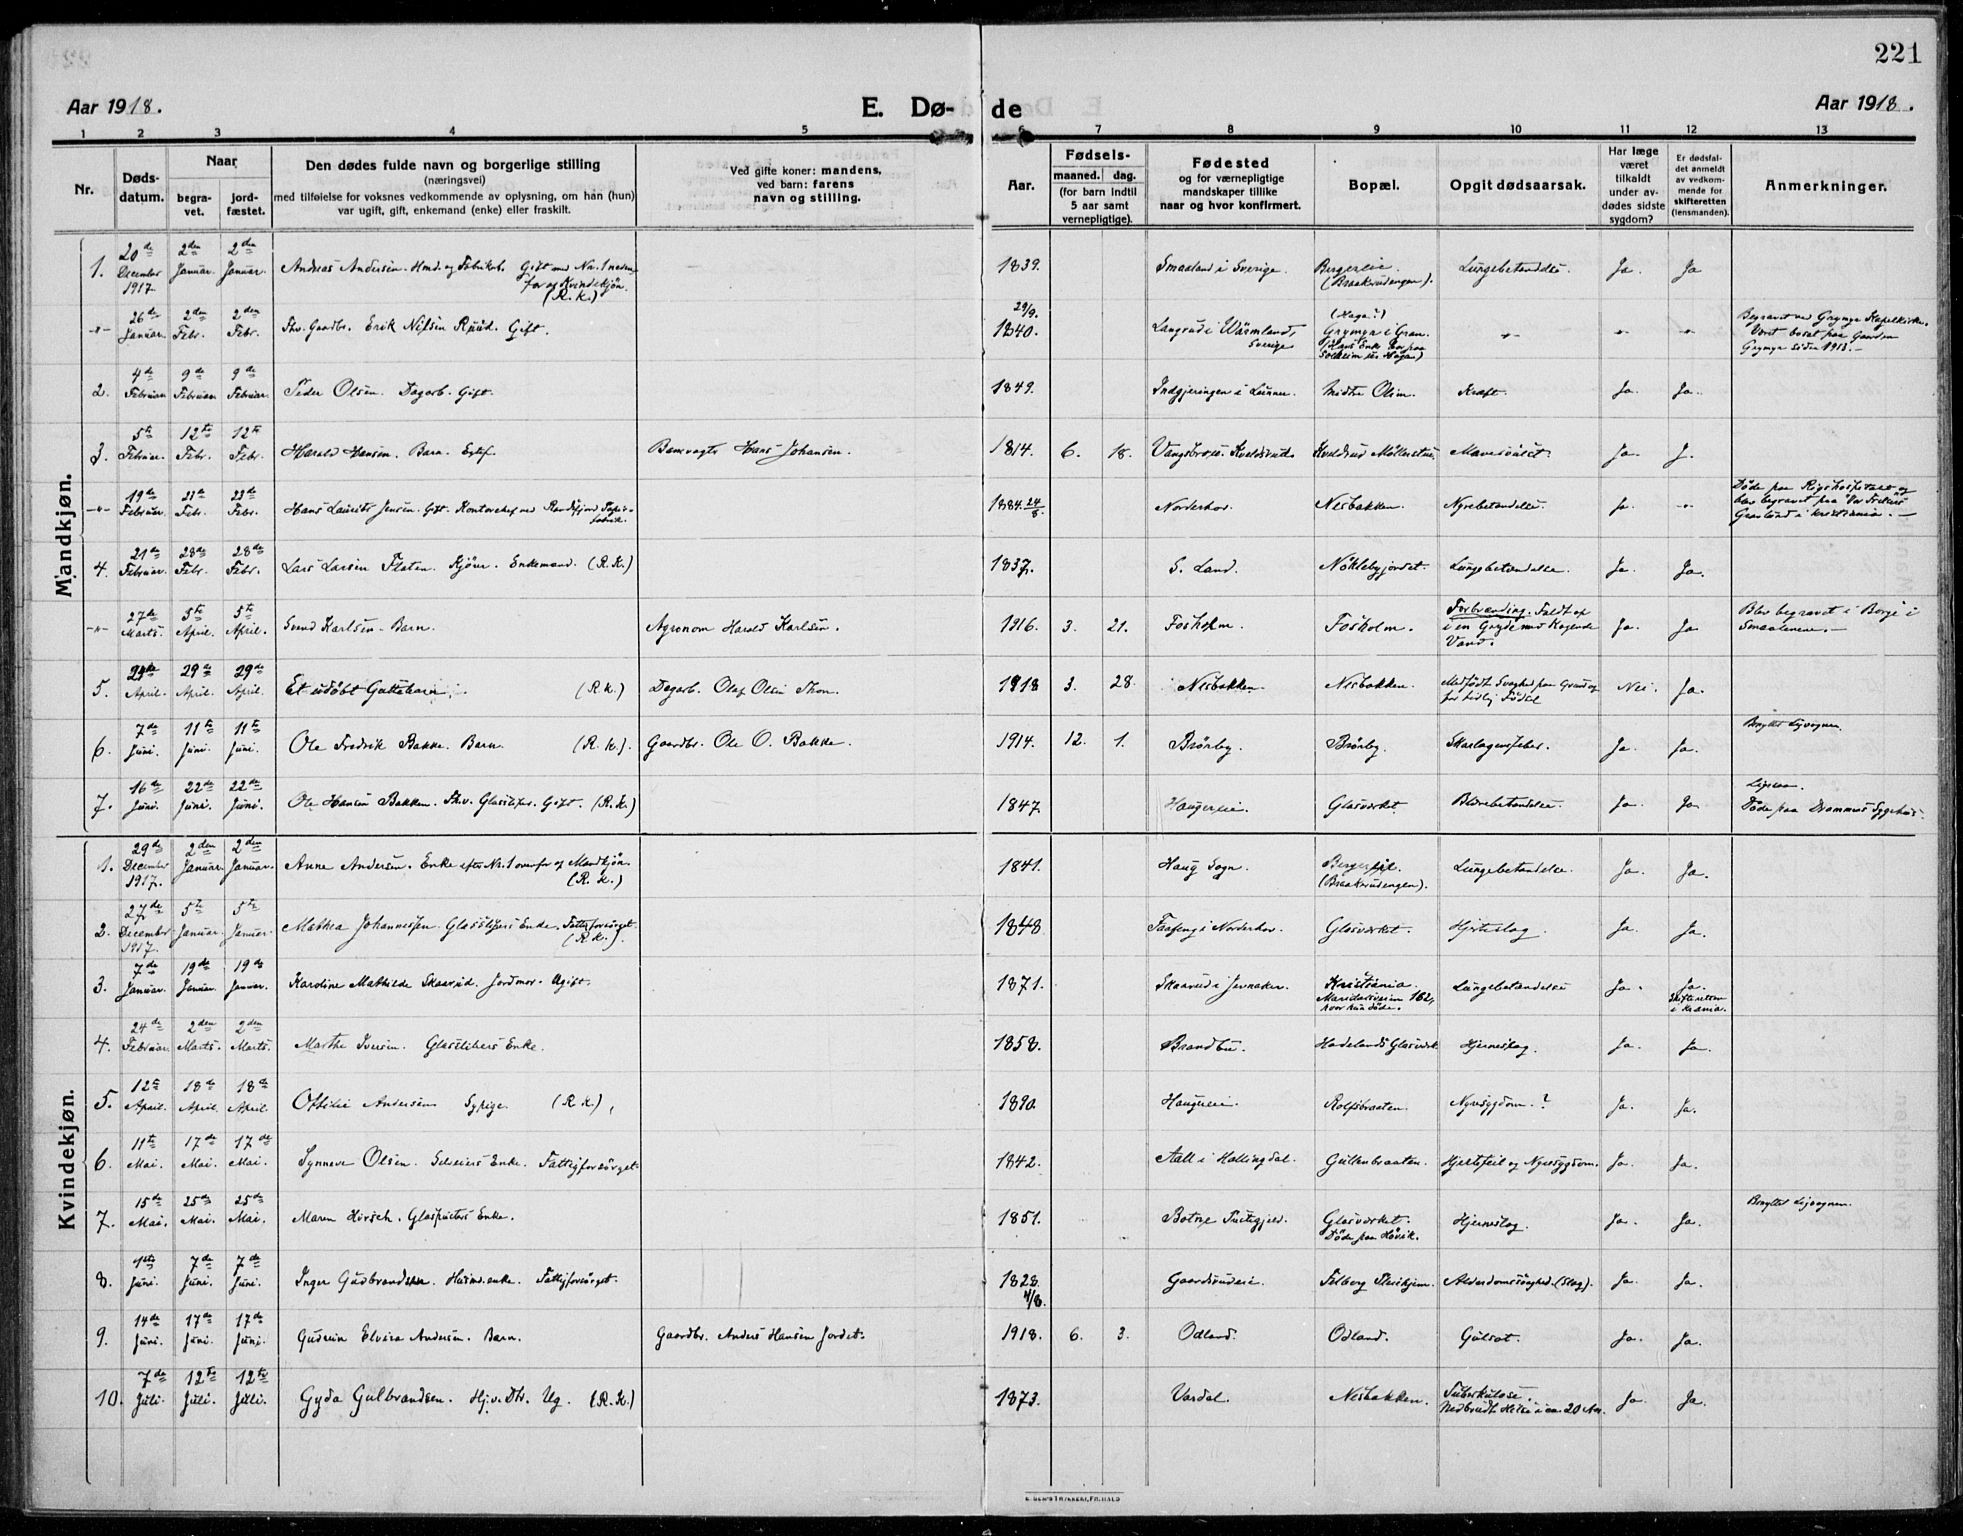 221
Aar 1918.
E. Dø- de
Aar 1918.
1 2 3 4 5 6 7 8 9 10 11 12 13
Nr.
Døds-
datum.
Naar
begra-
vet.
jord-
fæstet.
Den dødes fulde navn og borgerlige stilling
(næringsvei)
med tilføielse for voksnes vedkommende av oplysning, om han (hun)
var ugift, gift, enkemand (enke) eller fraskilt.
Ved gifte koner: mandens,
ved barn: farens
navn og stilling.
Aar.
Fødsels-
maaned. dag.
(for barn indtil
5 aar samt
vernepligtige).
Fødested
og for værnepligtige
mandskaper tillike
naar og hvor konfirmert.
Bopæl.
Opgit dødsaarsak.
Har læge
været
tilkaldt
under av-
dødes sidste
sygdom?
Er dødsfal-
det anmeldt
av vedkom-
mende for
skifteretten
(lensmanden).
Anmerkninger.
Mandkjøn.
1. 20de December 1917. 2den Januar. 2den Januar. Andreas Andersen. Hmd. og Fabrikarb. Gift med Nr. 1 neden-
for og Kvindekjøn.
(R. K.)
1839. Smaaland i Sverige. Bergerlie. (Braakrudengen). Lungebetændelse. Ja. Ja
-"- 26de Januar. 2den Febr. 2den Febr. Fhv. Gaardbr. Erik Nilsen Ruud. Gift.
29/9. 1840. Langrud i Wärmland, Sverige (Haga.) Grymyr i Gran. (Hans Enke bor paa Solheim pr. Hagan) -"- -"- -"- Begravet ved Grymyr Kapelkirke. Været bosat paa Gaarden Grymyr siden 1913.-
2. 4de Februar. 9de Februar. 9de Februar. Peder Olsen. Dagarb. Gift.
1849. Indgjeringen i Lunner. Midtre Olim. Kræft. Ja. Ja.
3. 5te Februar. 12te Febr. 12te Febr. Harald Hansen. Barn. Banevagt Hans Johansen.
1814. 6. 18. Kveldsrud Møllerstue. Mavesvulst. Ja. J.
-"- 19de Februar. 23de Febr. 23de Febr. Hans Laurits Jensen. Gift. Kontorchef ved Randsfjord Papir-
fabrik.
1884 24/8. Norderhov. Nesbakken. Nyrebetændelse. Ja. -"- Døde paa Rigshospitalet og blev begravet paa "Vor Frelsers" Gravlund i Kristiania.-
4. 21de Februar. 28de Febr. 28de Febr. Lars Larsen Flaten. Kjører. Enkemand. (R. K.)
1837. S. Land. Nøklebyjordet. Lungebetændelse. Ja. Ja.
-"- 27de Marts. 5te April. 5te April. Svend Karlsen. Barn. Agronom Harald Karlsen.
1916. 3. 21. Fosholm. Fosholm. Forbrænding. Faldt op i en Gryde med Kogende Vand. Ja. Ja Blev begravet i Borge i Smaalenene.-
5. April. 29de April. 29de April. Et udøbt Guttebarn. (R. K.) Dagarb. Olaf Olsen Thon.
1918 3. 28. Nesbakken. Nesbakken. Medfødt Svaghed paa Grund af for tidlig Fødsel Nei. Ja.
6. 7de Juni. 11te Juni. 11te Juni. Ole Fredrik Bakke. Barn. (R. K.). Gaardbr. Ole O. Bakke.
1914. 12. 1. Brørby. Brørby. Skarlagensfeber. Ja. Ja. Benyttet Ligvognen.
7. 16de Juni. 22de Juni. 22de Juni. Ole Hansen Bakken. Fhv. Glassliper. Gift. (R. K.)
1847. Haugerеie. Glasværket. Blærebetændelse. Ja. Ja Døde paa Drammens Sygehus.
Kvindekjøn.
1. 29de December 1917. 2den Januar. 2den Januar. Anne Andersen. Enke efter Nr. 1 ovenfor og Mandkjøn.
(R. K.)
1841. Haug Sogn. (Braakrudengen). Lungebetændelse. Ja. Ja.
2. 27de December 1917. 5te Januar. 5te Januar. Mathea Johannessen. Glasslipers Enke. Fattigforsørget.
(R. K.).
1848. Norderhov. Glasværket. Hjerteslag. Ja. Ja.
3. 7de Januar. 19de Januar. 19de Januar. Karoline Mathilde Skaarud. Jordmor. Ugift.
1871. Skaarud i Jevnaker. Kristiania. Maridalsveien 162, hvor hun døde. Lungebetændelse Ja. Ja. Skifteretten i Krania.
4. 24de Februar. 2den Marts. 2den Marts. Marthe Iversen. Glasslibers Enke.
1858. Brandbu. Hadelands Glasværk. Hjerneslag. Ja. Ja.
5. 12te April. 18de April. 18de April. Ottilie Andersen. Sypige. (R. K.),
1890. Rolfsbraaten. Nyresygdom.? Ja. Ja.
6. 11te Mai. 17de Mai. 17de Mai. Synneve Olsen. Selveiers Enke. Fattigforsørget.
1842. Aall i Hallingdal. Gullenbraaten. Hjertefeil og Nyresygdom. Ja. Ja.
7. 15de Mai. 25de Mai. 25de Mai. Maren Hirsch. Glaspusters Enke.
1851. Botne Prestegjeld. Glasværket. Døde paa Høvik. Hjerneslag. Ja. Ja. Benyttet Ligvognen.
8. 1ste Juni. 7de Juni. 7de Juni. Inger Gudbrandsen. Husmd.enke. Fattigforsørget.
1828. 4/8. Gaardsrudeie. Felberg Pleiehjem. Alderdomssvaghed. (Slag). Ja. Ja.
9. 14de Juni. 17de Juni. 17de Juni. Gudrun Elvira Andersen. Barn. Gaardbr. Anders Hansen Jordet.
1918. 6. 3. Odland. Odland. Gulsot. Ja. Ja.
10. 7de Juli. 12te Juli. 12te Juli. Gyda Gulbrandsen. Hjv. Dtr. Ug. (R. K.)
1873. Vardal. Nesbakken. Tuberkulose. Nedbrudt Helse i ca. 20 Aar. Ja. Ja.